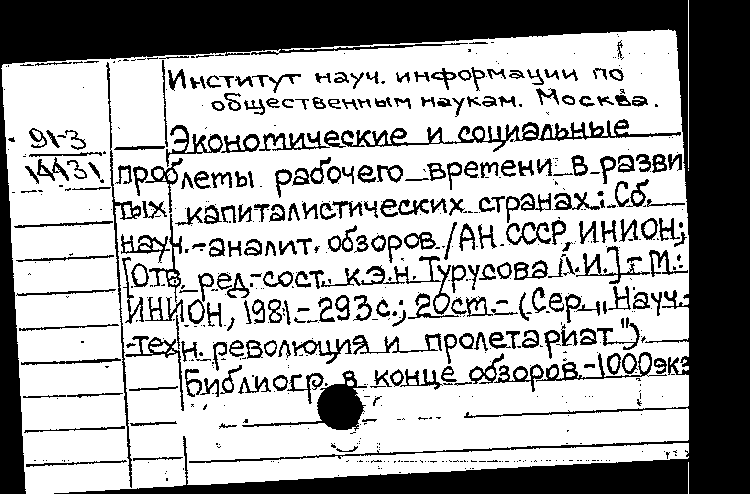 Институт науч. информации по
общественным наукам. Москва.
91-3 Экономические и социальные
14431 проблемы рабочего времени в разви
тых капиталистических странах: Сб.
науч.-аналит. обзоров / АН СССР, ИНИОН;
[Отв. ред.-сост. к.э.н. Турусова Л.И.] г М.:
ИНИОН, 1981.- 293 с.; 20 см.- (Сер. „Науч.-
-техн. революция и пролетариат").
Библиогр. в конце обзоров.-1000экз